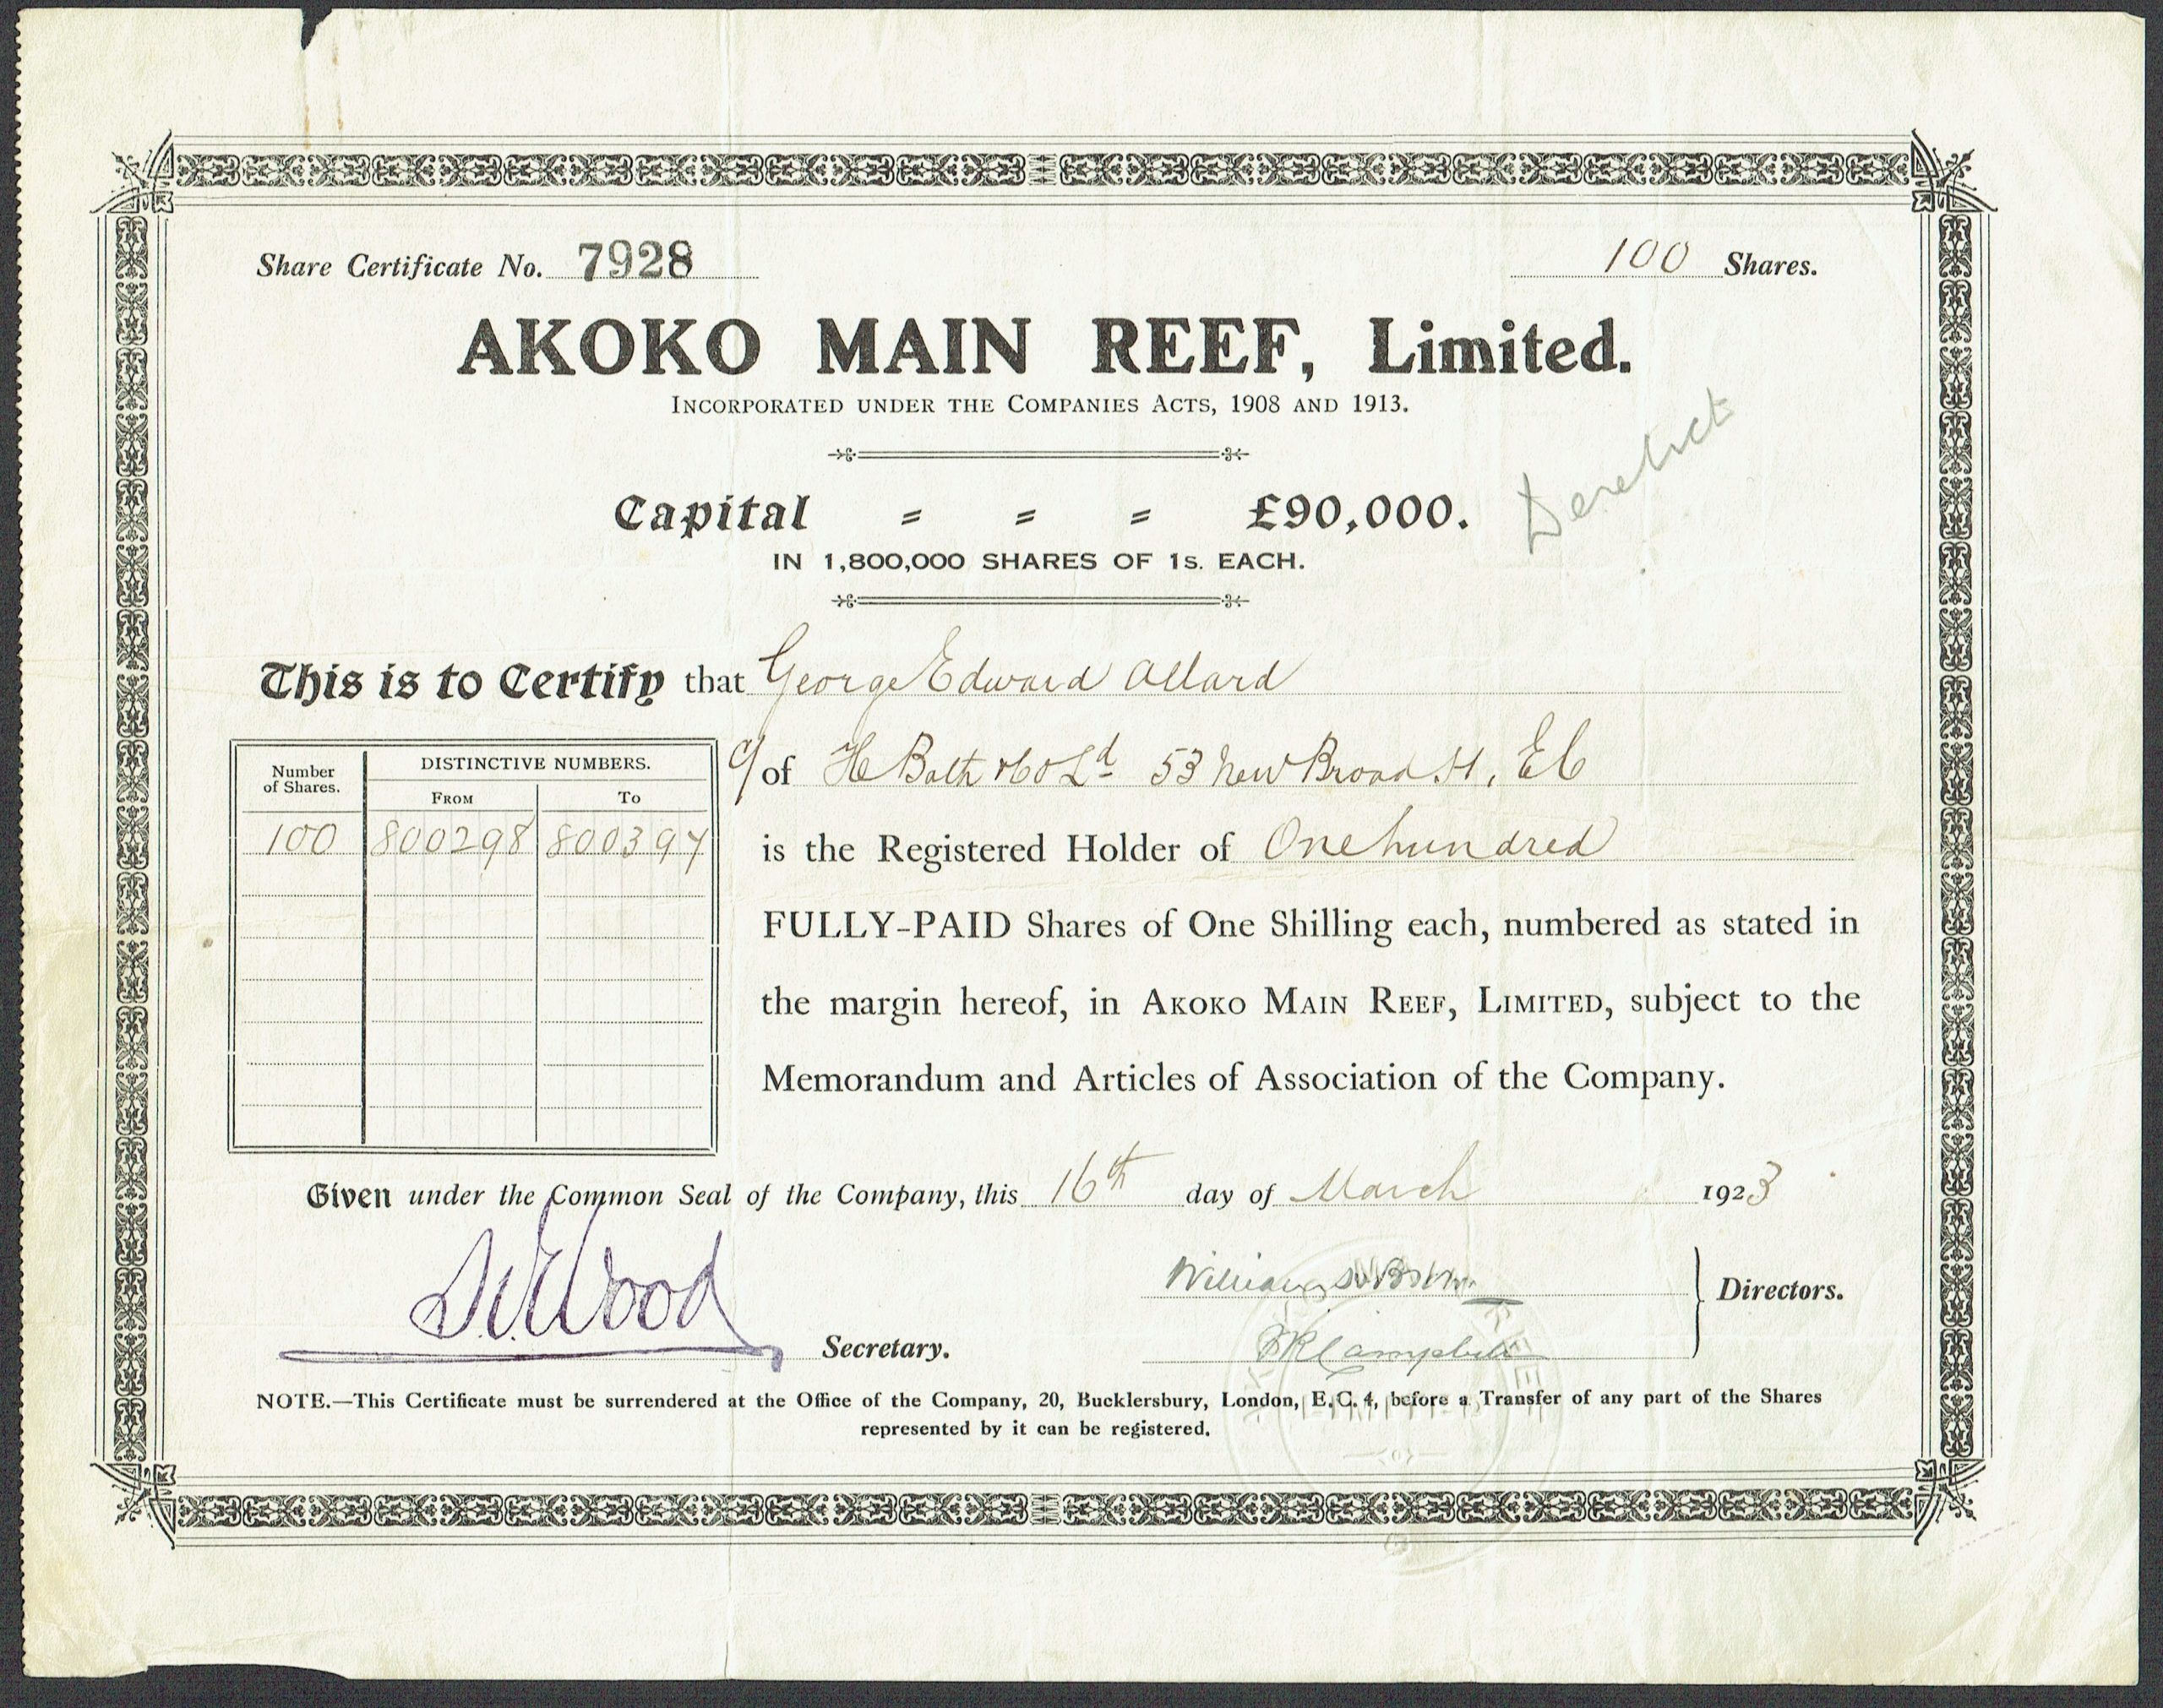 Share Certificate No. 7928
100 Shares.
AKOKO MAIN REEF, Limited.
INCORPORATED UNDER THE COMPANIES ACTS, 1908 AND 1913.
Derelict
Capital = = = £90,000.
IN 1,800,000 SHARES OF 1s. EACH.
This is to Certify that George Edward Allard
c/ of H Bath & Co Ld 53 New Broad St, EC
Number of Shares.
DISTINCTIVE NUMBERS.
FROM TO
100 800298 800397
is the Registered Holder of One hundred
FULLY-PAID Shares of One Shilling each, numbered as stated in
the margin hereof, in AKOKO MAIN REEF, LIMITED, subject to the
Memorandum and Articles of Association of the Company.
Given under the Common Seal of the Company, this 16th day of March 1923
Wood
Secretary.
William
Campbell
Directors.
NOTE.—This Certificate must be surrendered at the Office of the Company, 20, Bucklersbury, London, E.C. 4, before a Transfer of any part of the Shares
represented by it can be registered.